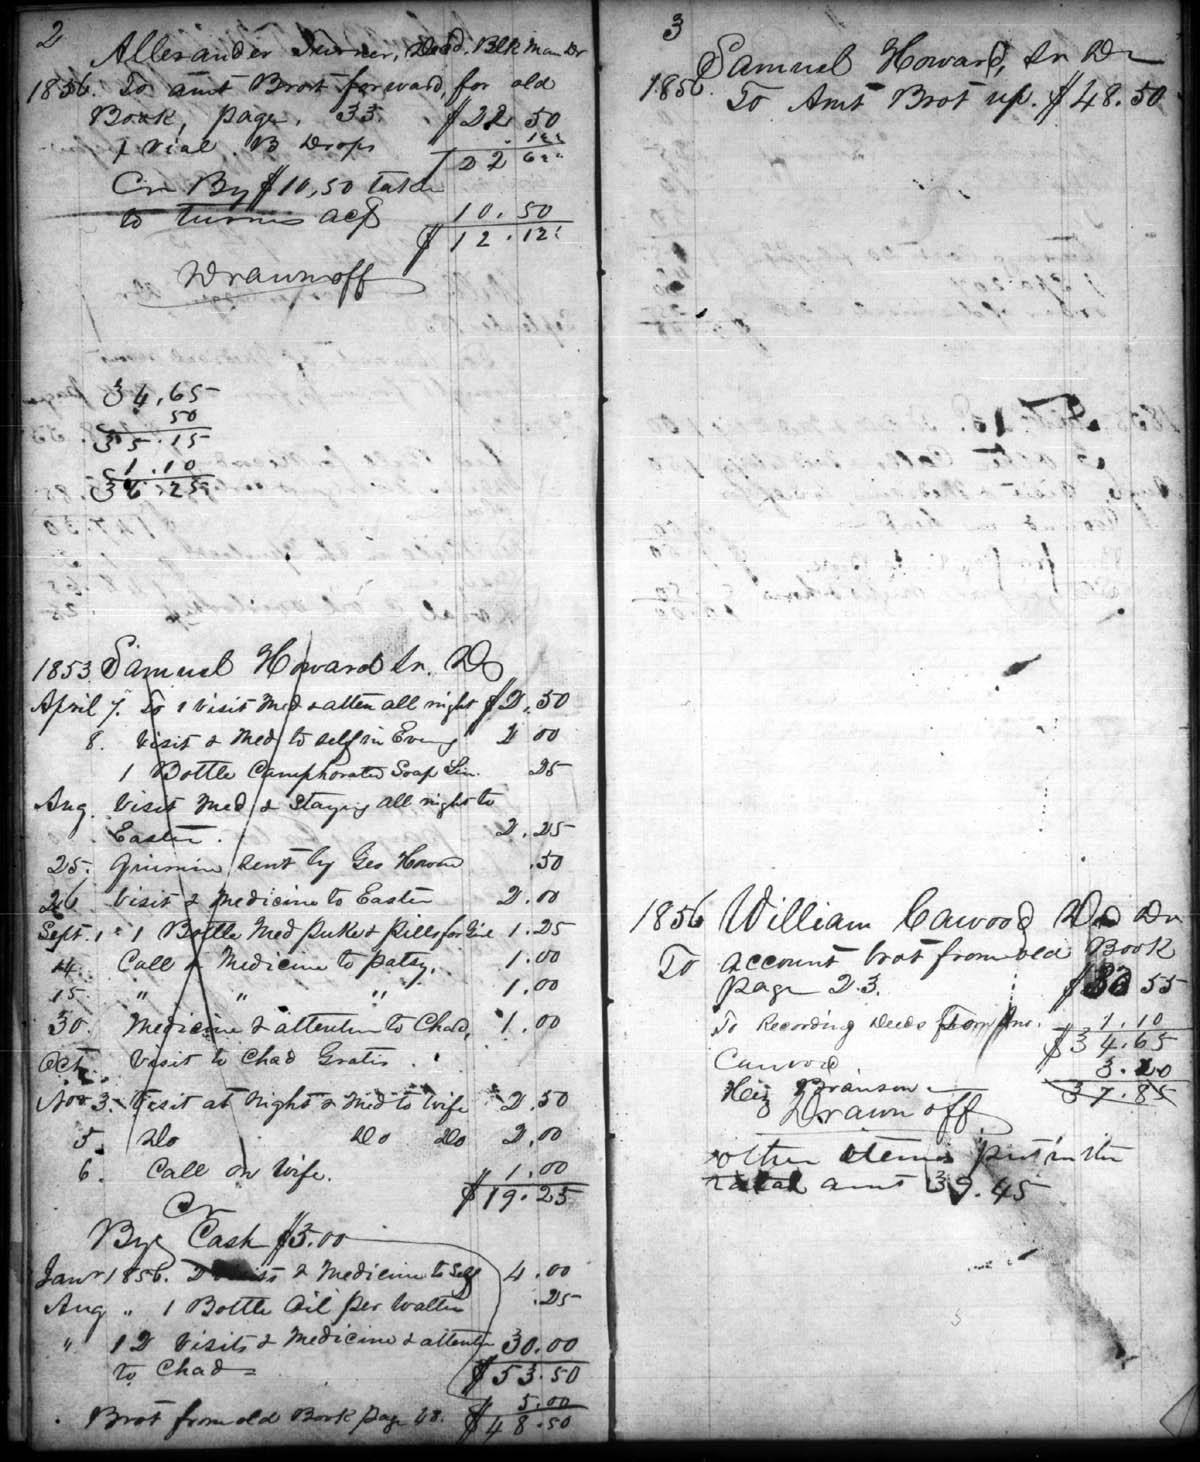 2
Allexander Turner, Dead. Blk man Dr
1856. To amt Brot forward, for old
Book, page, 33. $22 50
1 vial B Drops 12½
22 62½
Cr By $10,50 taken
to turners act 10.50
$12.12½
Drawn off
34,65
50
35.15
1.10
36.25
1853 Samuel Howard Sr. Dr
April 7. To 1 visit Med & atten all night $2.50
8. Visit & Med to self in Eveng 2 00
1 Bottle Camphorated Soap Lin. 25
Aug. Visit Med & Staying all night to
Easter. 2.25
25. Quinine sent by Geo Howard .50
26 Visit & Medicine to Easter 2.00
Sept. 1 " 1 Bottle Med Puke & Pills for Girl 1.25
4. Call & Medicine to patsy, 1.00
15. " " " 1.00
30. Medicine & attention to Chad, 1.00
Oct. Visit to Chad Gratis.
Nov 3. Visit at Night & Med to wife 2.50
5. Do Do Do 2.00
6. Call on wife. 1.00
$19.25
Cr
By Cash $5.00
Janr 1856. 2 Visits & Medicine to Self 4.00
Aug " 1 Bottle Oil per Walter .25
" 12 Visits & Medicine & attention 30.00
to Chad = $53.50
5.00
Brot from old Book page 48. $48.50
3
Samuel Howard, Sr Dr
1856. To Amt Brot up. $48.50
1856 William Cawood Dr
To account brot from old Book
page 23. $33 55
To Recording Deeds from Jno. 1.10
Cawood $34.65
Hez Branson 3.20
37.85
Drawn off
other items put in the
total amt 39.45